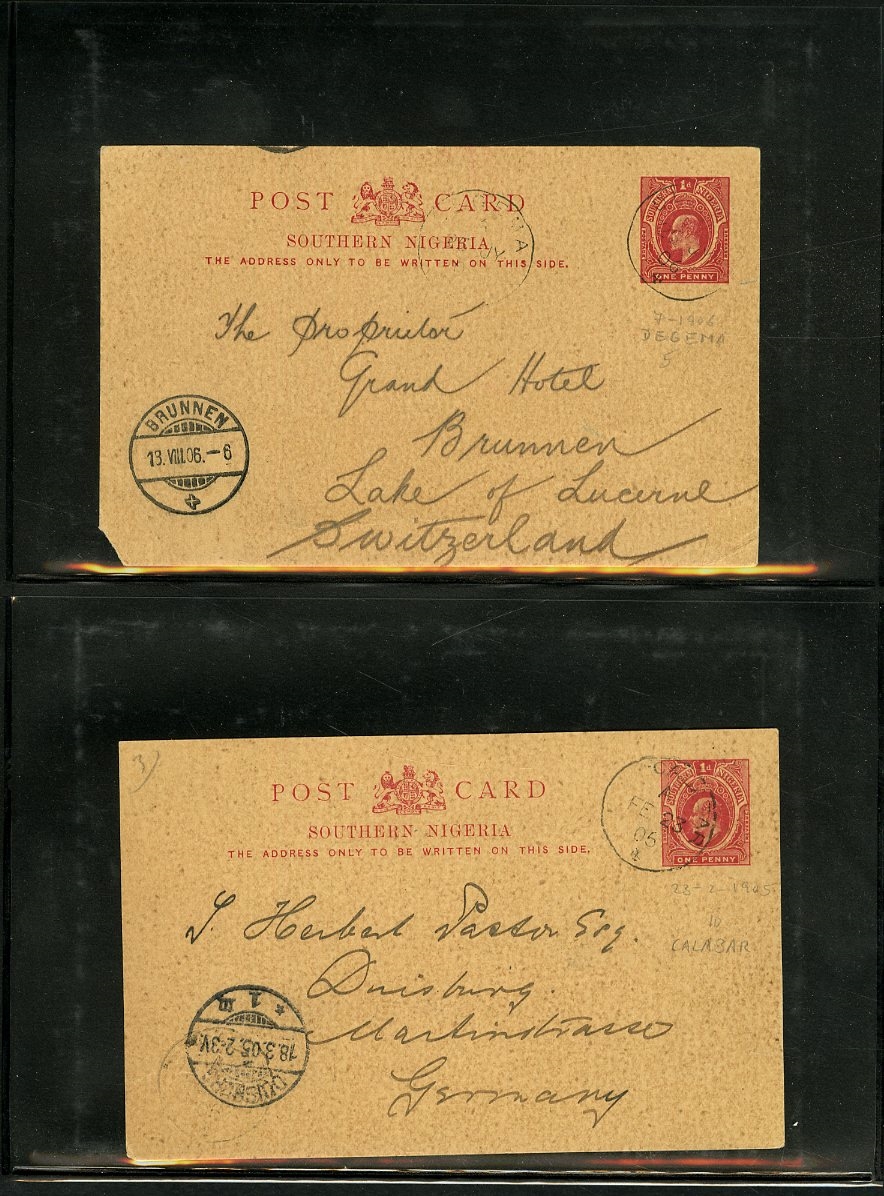 POST CARD
SOUTHERN NIGERIA
THE ADDRESS ONLY TO BE WRITTEN ON THIS SIDE.
SOUTHERN 1d NIGERIA
ONE PENNY
The Proprietor
7-1906
DEGEMA
5
Grand Hotel
Brunnen
Lake of Lucerne
Switzerland
BRUNNEN
13.VIII.06.-6
3)
POST CARD
SOUTHERN NIGERIA
THE ADDRESS ONLY TO BE WRITTEN ON THIS SIDE.
SOUTHERN 1d NIGERIA
ONE PENNY
FE 23
05
23-2-1905
10
CALABAR
Herbert Pastor Esq.
Duisburg.
Martinstrasse
Germany
* 1 m
18.3.05.2-3V.
DUISBURG